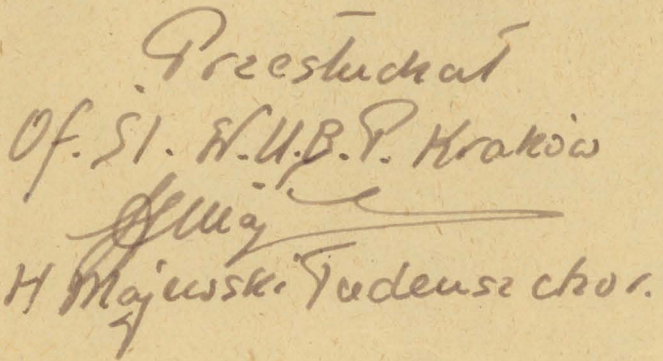 Przesłuchał
Of. Śl. W.U.B.P. Kraków
Majewski Tadeusz chor.